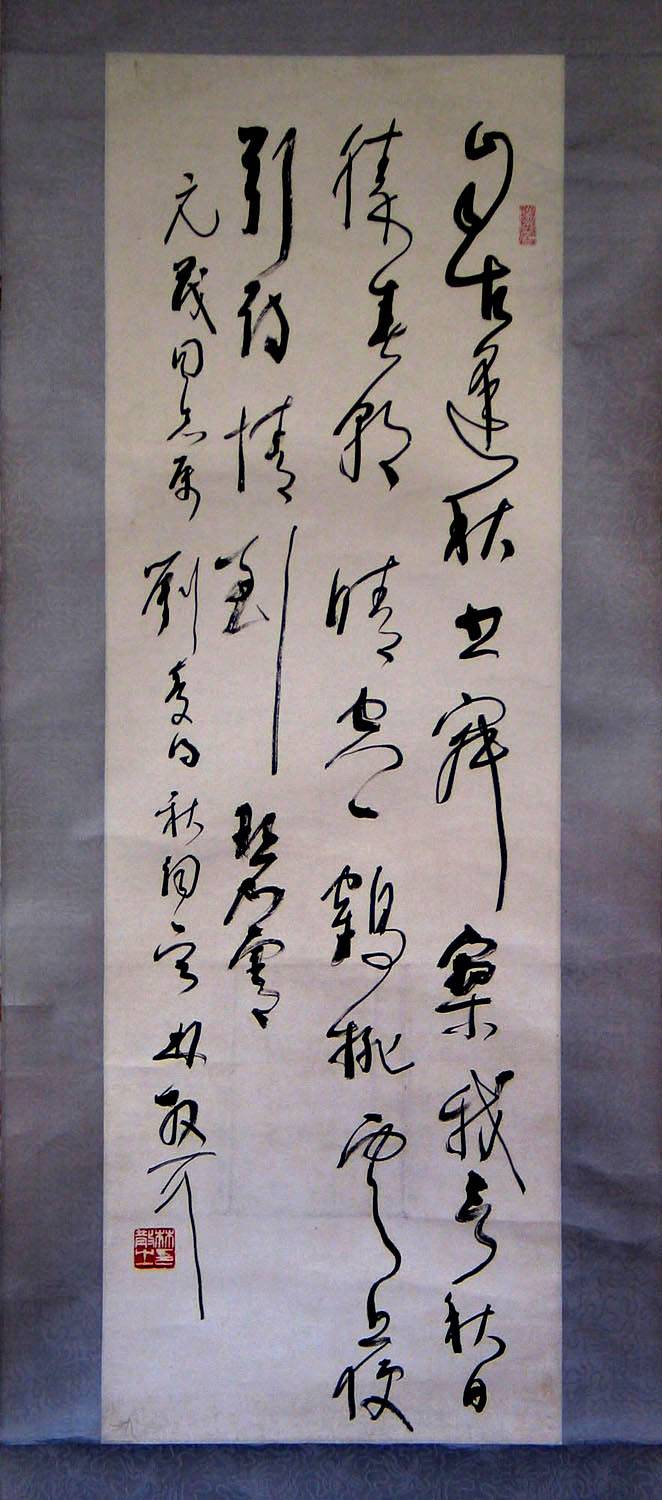 自古逢秋悲寂寥我言秋日
勝春朝晴空一鶴排雲上便
引詩情到碧霄
元茂同志屬 劉夢得秋詞 林散耳